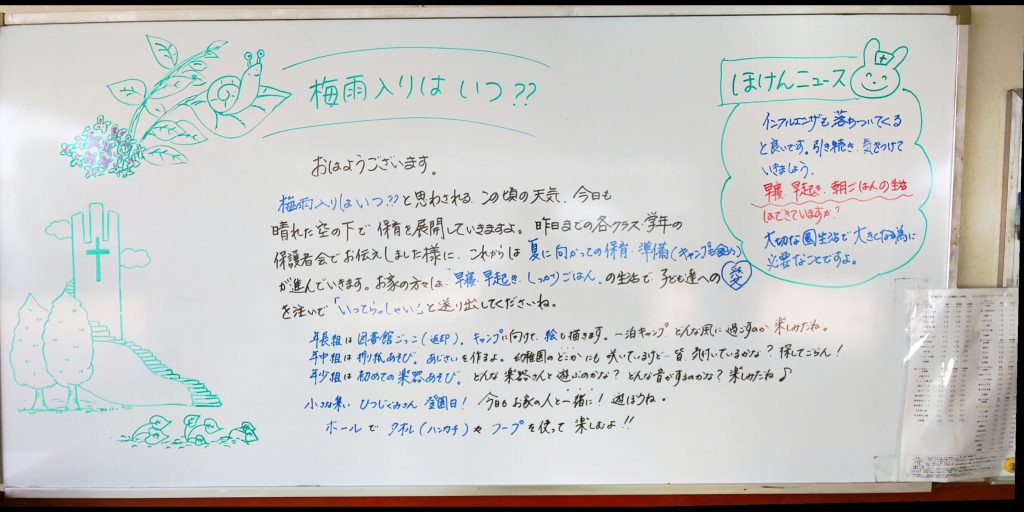 梅雨入りは いつ??
おはようございます。
梅雨入りはいつ??と思わされる、この頃の天気、今日も
晴れた空の下で保育を展開していきますよ。昨日までの各クラス・学年の
保護者会でお伝えしました様に、これからは夏に向かっての保育・準備(キャンプも含め)
が進んでいきます。お家の方々は、「早寝、早起き、しっかりごはん」の生活で、子ども達への愛
を注いで「いってらっしゃい」と送り出してくださいね。
年長組は図書館ごっこ(返却)。キャンプに向けて、絵も描きます。一泊キャンプ どんな風に過ごすのか 楽しみだね。
年中組は折り紙あそび。あじさいを作るよ。幼稚園のどこかにも咲いているけど…皆 気付いているかな?探してごらん!
年少組は初めての楽器あそび。どんな楽器さんと遊ぶのかな?どんな音がするのかな?楽しみだね♪
ひつじぐみさん 登園日! 今日もお家の人と一緒に!遊ぼうね。
ホールで タオル(ハンカチ)や フープを使って 楽しむよ!!
ほけんニュース
インフルエンザも落ちついてくる
と良いです。引き続き、気をつけて
いきましょう。
早寝、早起き、朝ごはんの生活
はできていますか?
大切な園生活で大きくなる為に
必要なことですよ。